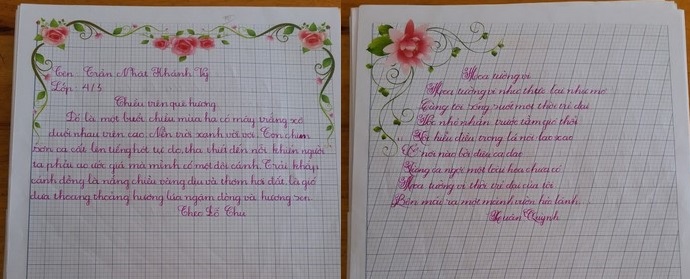 Tên: Trần Nhật Khánh Vy
Lớp: 4/3
Chiều trên quê hương
Đó là một buổi chiều mùa hạ có mây trắng xô
đuổi nhau trên cao. Nền trời xanh vời vợi. Con chim
sơn ca cất lên tiếng hót tự do, tha thiết đến nỗi khiến người
ta phải ao ước giá mà mình có một đôi cánh. Trải khắp
cánh đồng là nắng chiều vàng dịu và thơm hơi đất, là gió
đưa thoang thoảng hương lúa ngậm đòng và hương sen.
Theo Đỗ Chu
Hoa tường vi
Hoa tường vi như thực lại như mơ
Cùng tôi sống suốt một thời trẻ dại
Tóc nhỏ nhắn trước tầm gió thổi
Tôi hiểu điều trong lá nói lao xao
Ở nơi nào bởi điệu ca dao
Từng ca ngợi một loài hoa chưa có
Hoa tường vi thời trẻ dại của tôi
Bên màu ra một mảnh vườn hóa lành.
Xuân Quỳnh